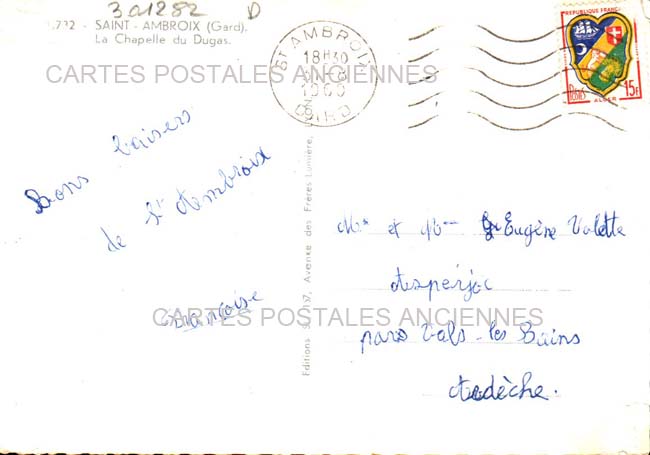 301282 D
- SAINT - AMBROIX (Gard).
La Chapelle du Dugas.
ST AMBROIX
18H30
1960
GARD
REPUBLIQUE FRANÇAISE
15F
ALGER
CARTES POSTALES ANCIENNES
Bons baisers
de St Ambroix
Françoise
Editions 157, Avenue des Frères Lumière,
Mr et Mme Eugène Valette
Asperjoc
par Vals-les Bains
Ardèche.
CARTES POSTALES ANCIENNES